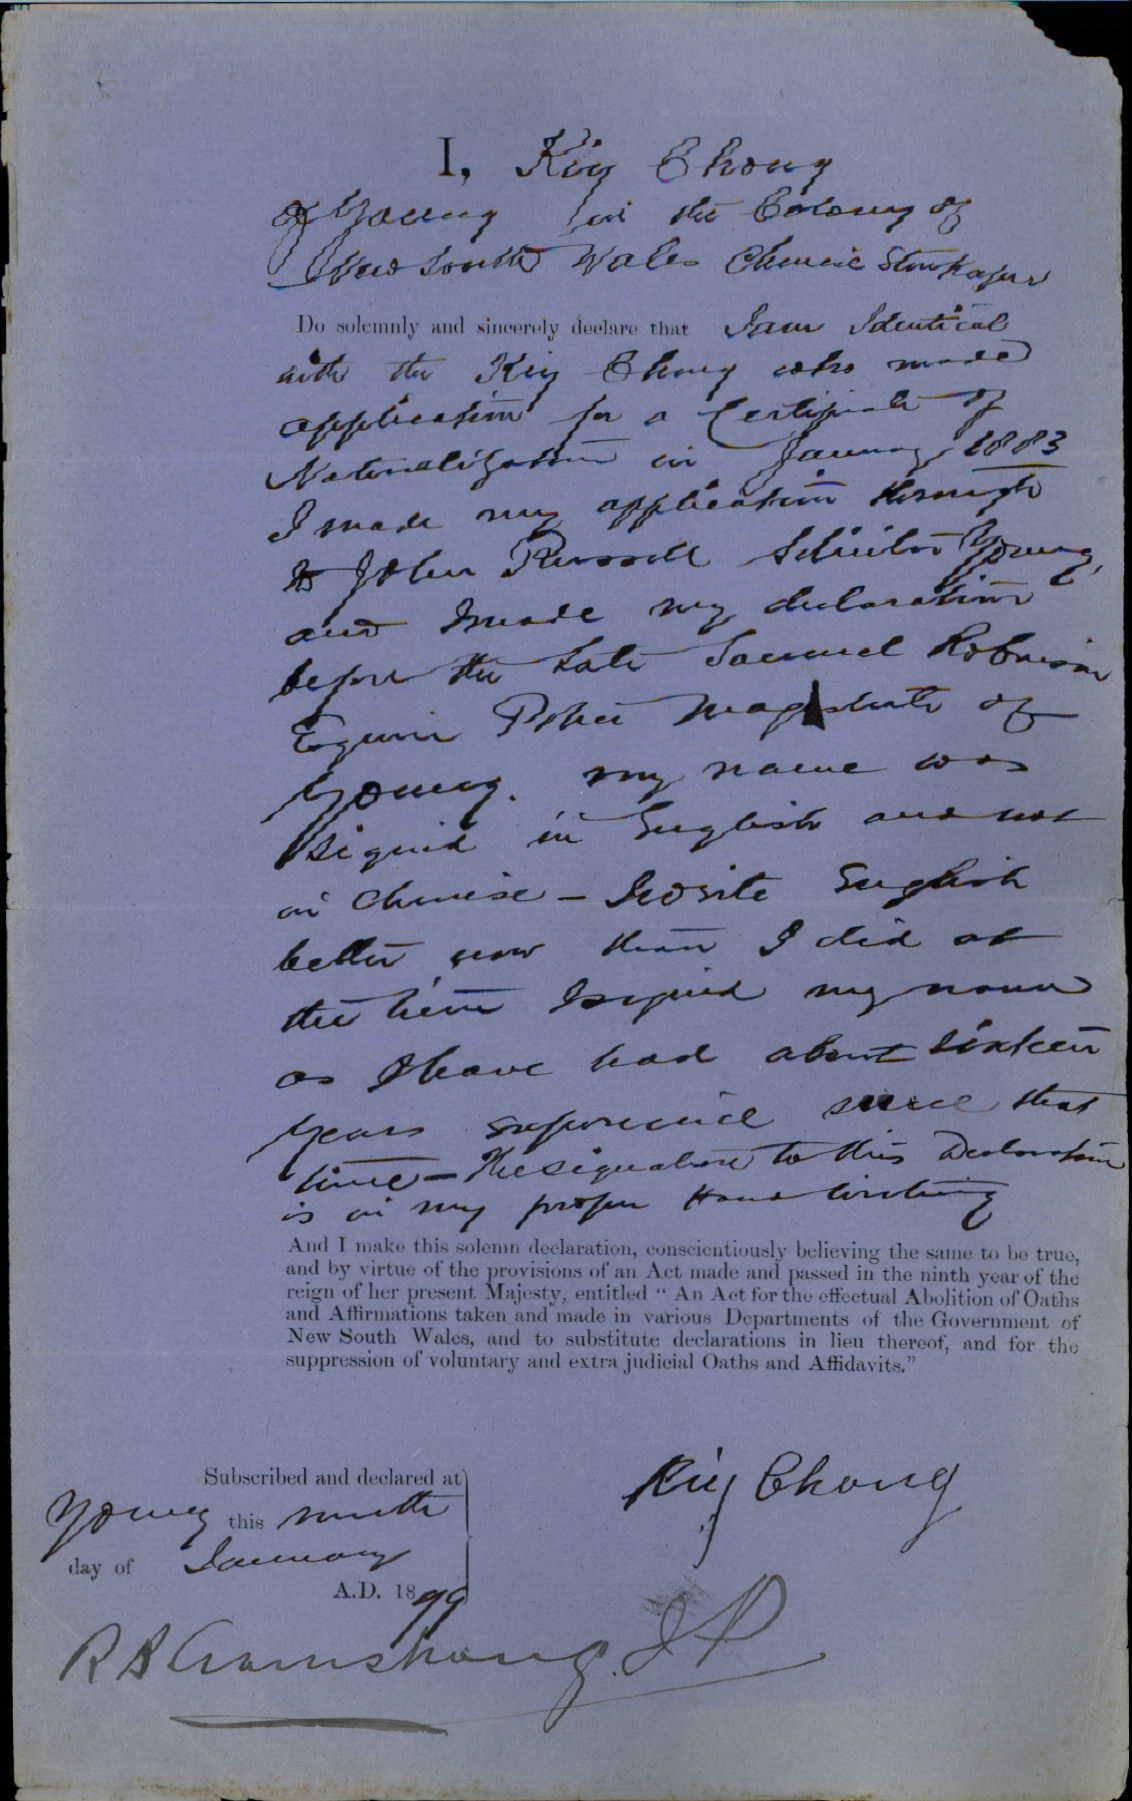 I, Kiy Chong
of Young in the Colony of
New South Wales Chinese Storekeeper
Do solemnly and sincerely declare that I am Identical
with the Kiy Chong who made
application for a Certificate of
Naturalization in January 1883
I made my application through
to John Russell Solicitor Young,
and I made my declaration
before the Late Samuel Robinson
Esquire Police Magistrate of
Young. my name was
signed in English and not
in Chinese – I write English
better now than I did at
the time I signed my name
as I have had about sixteen
years experience since that
time – The signature to this Declaration
is in my proper Hand writing
And I make this solemn declaration, conscientiously believing the same to be true,
and by virtue of the provisions of an Act made and passed in the ninth year of the
reign of her present Majesty, entitled “ An Act for the effectual Abolition of Oaths
and Affirmations taken and made in various Departments of the Government of
New South Wales, and to substitute declarations in lieu thereof, and for the
suppression of voluntary and extra judicial Oaths and Affidavits.”
Subscribed and declared at
Young this ninth
day of January
A.D. 1899
Kiy Chong
R B Armstrong. J P